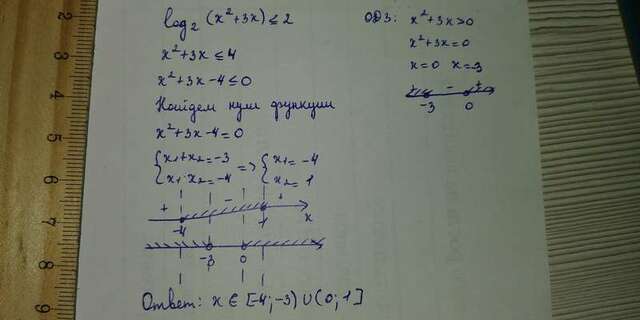 log₂(x²+3x) ≤ 2
x²+3x ≤ 4
x²+3x-4 ≤ 0
Найдем нули функции
x²+3x-4=0
{x₁+x₂=-3
{x₁·x₂=-4
=> {x₁=-4
{x₂=1
+ - +
-4 1 x
-3 0
Ответ: x ∈ [-4;-3) ∪ (0;1]
ОДЗ: x²+3x>0
x²+3x=0
x=0 x=-3
+ - +
-3 0
2
3
4
5
6
7
8
9